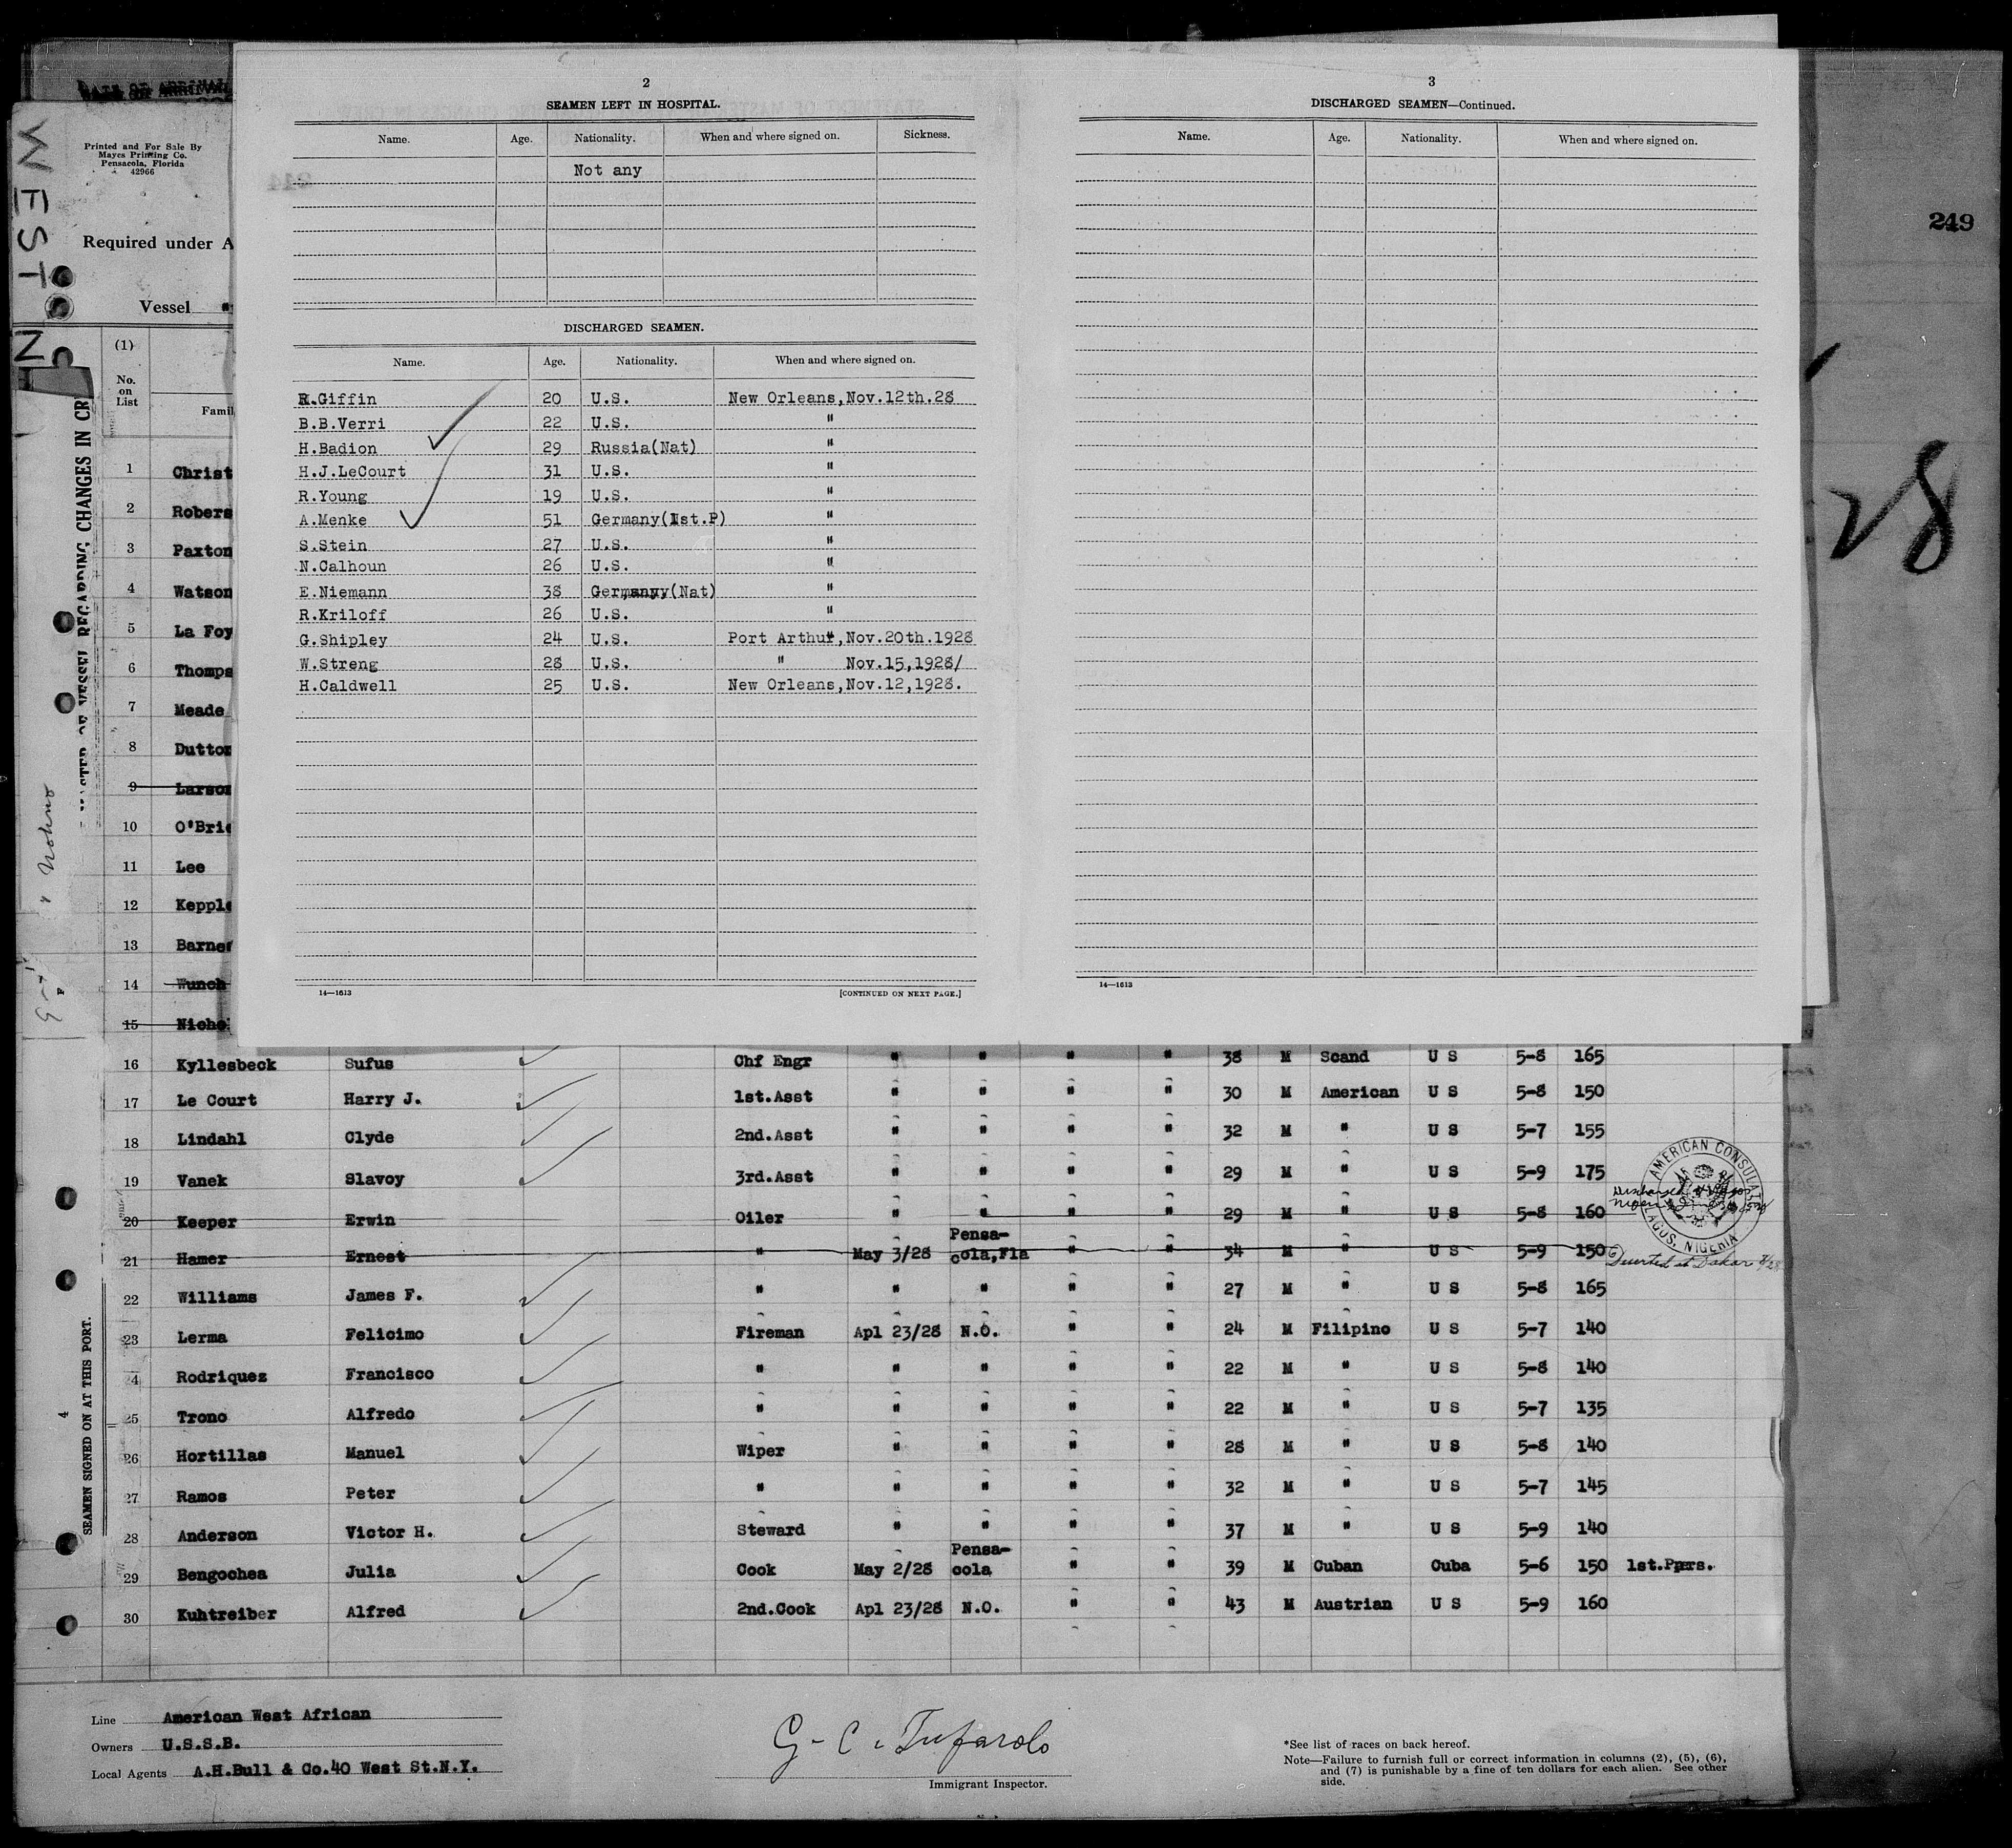 2
SEAMEN LEFT IN HOSPITAL.
Name. Age. Nationality. When and where signed on. Sickness.
Not any
DISCHARGED SEAMEN.
Name. Age. Nationality. When and where signed on.
R.Giffin 20 U.S. New Orleans,Nov.12th.28
B.B.Verri 22 U.S. "
H.Badion 29 Russia(Nat) "
H.J.LeCourt 31 U.S. "
R.Young 19 U.S. "
A.Menke 51 Germany(1st.P) "
S.Stein 27 U.S. "
N.Calhoun 26 U.S. "
E.Niemann 38 Germany(Nat) "
R.Kriloff 26 U.S. "
G.Shipley 24 U.S. Port Arthur,Nov.20th.1928
W.Streng 28 U.S. " Nov.15,1928/
H.Caldwell 25 U.S. New Orleans,Nov.12,1928.
14—1613
[CONTINUED ON NEXT PAGE.]
3
DISCHARGED SEAMEN—Continued.
Name. Age. Nationality. When and where signed on.
14—1613
249
28
DATE OF ARRIVAL
Printed and For Sale By
Mayes Printing Co.
Pensacola, Florida
42966
WEST
Required under A
Vessel "
(1)
No.
on
List
Famil
REGARDING CHANGES IN CR
1 Christ
2 Robers
3 Paxton
4 Watson
5 La Foy
6 Thomps
7 Meade
8 Dutton
9 Larson
10 O'Brie
11 Lee
12 Kepple
13 Barnes
14 Wunch
15 Nichol
16 Kyllesbeck Sufus Chf Engr " " " " 38 M Scand U S 5-8 165
17 Le Court Harry J. 1st.Asst " " " " 30 M American U S 5-8 150
18 Lindahl Clyde 2nd.Asst " " " " 32 M " U S 5-7 155
19 Vanek Slavoy 3rd.Asst " " " " 29 M " U S 5-9 175
20 Keeper Erwin Oiler " " " " 29 M " U S 5-8 160
21 Hamer Ernest " May 3/28 Pensa-cola,Fla " " 34 M " U S 5-9 150 Deserted at Dakar
22 Williams James F. " " " " " 27 M " U S 5-8 165
23 Lerma Felicimo Fireman Apl 23/28 N.O. " " 24 M Filipino U S 5-7 140
24 Rodriquez Francisco " " " " " 22 M " U S 5-8 140
25 Trono Alfredo " " " " " 22 M " U S 5-7 135
26 Hortillas Manuel Wiper " " " " 28 M " U S 5-8 140
27 Ramos Peter " " " " " 32 M " U S 5-7 145
28 Anderson Victor H. Steward " " " " 37 M " U S 5-9 140
29 Bengochea Julia Cook May 2/28 Pensa-cola " " 39 M Cuban Cuba 5-6 150 1st.Pprs.
30 Kuhtreiber Alfred 2nd.Cook Apl 23/28 N.O. " " 43 M Austrian U S 5-9 160
AMERICAN CONSULATE
LAGOS, NIGERIA
4
SEAMEN SIGNED ON AT THIS PORT.
Line American West African
Owners U.S.S.B.
Local Agents A.H.Bull & Co.40 West St.N.Y.
G-C. Tufarolo
Immigrant Inspector.
*See list of races on back hereof.
Note—Failure to furnish full or correct information in columns (2), (5), (6),
and (7) is punishable by a fine of ten dollars for each alien. See other
side.